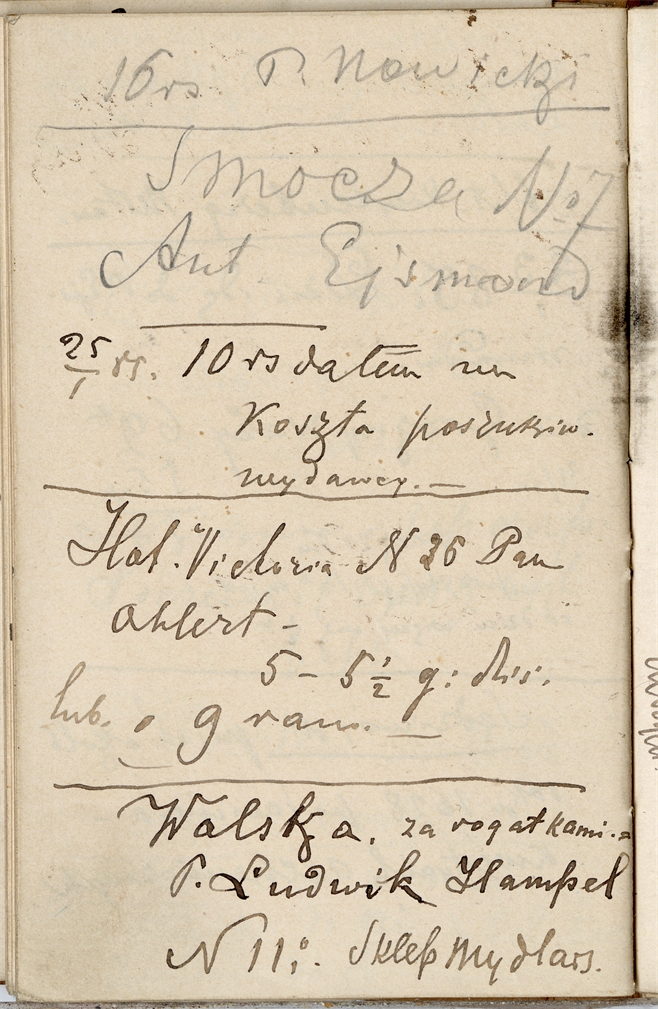 16 rs P. Nowicki
Smocza No 7
Ant. Ejsmond
25/1 85. 10 rs dałem na
Koszta poszukiw.
wydawcy. —
Hot. Victoria N 26 Pan
Ohlert —
5 – 5 1/2 g: dziś.
lub. o 9 rano. —
Walska, za rogatkami. –
P. Ludwik Hampel
N 11. Sklep Mydlars.